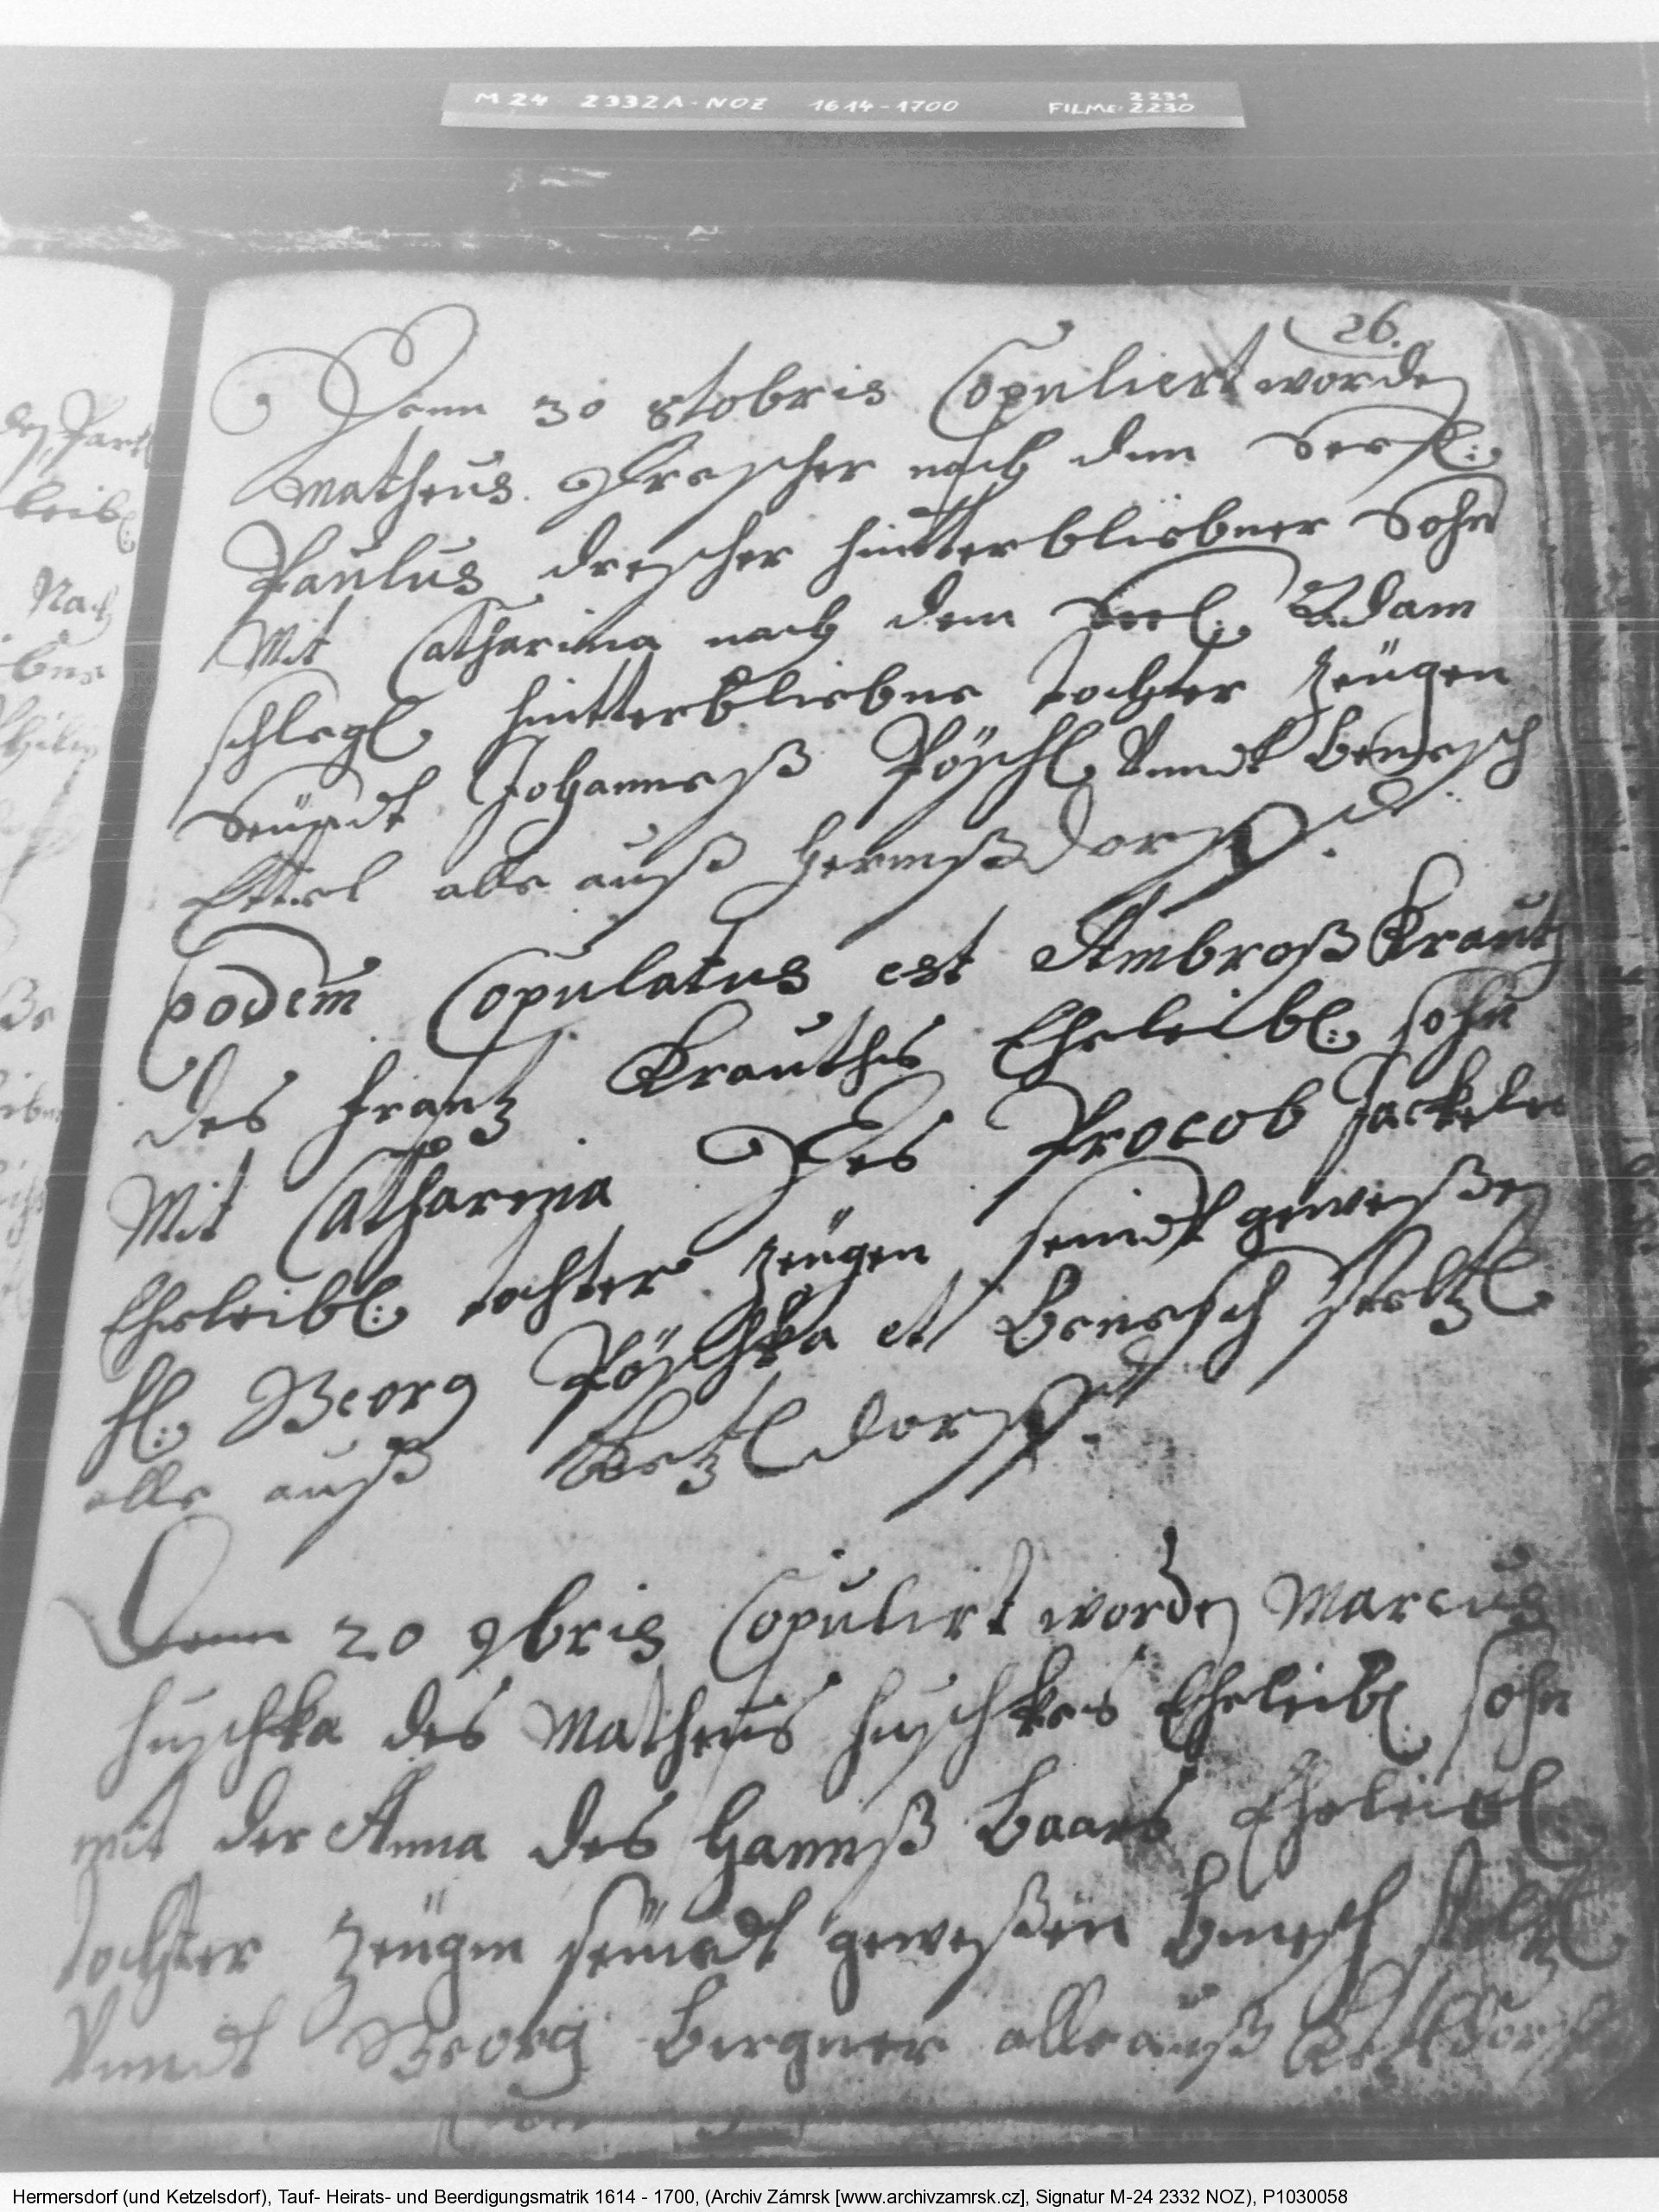 M 24 2332A-NOZ 1614-1700 FILME: 2231 2230
26.
Denn 30 8tobris Copuliert worden
Matheus Drescher nach dem Seel:
Paulus drescher hintterbliebner Sohn
Mit Catharina nach dem Seel: Adam
schlegl hintterbliebne tochter zeügen
Seündt Johanneß Pöschl Vnndt Benesch
Ettel alle auß Hermßdorff
Eodem Copulatus est Ambroß Krauth
des frantz Krauthes Eheleibl: sohn
Mit Catharina Des Procob Jackeles
Eheleibl: tochter zeügen seindt geweßen
H: Georg Pöschka et Benesch steltzl
alle auß Ketzldorff
Denn 20 9bris Copulirt worden Marcus
huschka des Matheus huschkes Eheleibl sohn
mit der Anna des Hannß Baars Eheleibl
tochter zeügen seündt geweßen Benesch steltzl
Vnndt Georg Bergner alle auß Ketzldorff
Hermersdorf (und Ketzelsdorf), Tauf- Heirats- und Beerdigungsmatrik 1614 - 1700, (Archiv Zámrsk [www.archivzamrsk.cz], Signatur M-24 2332 NOZ), P1030058